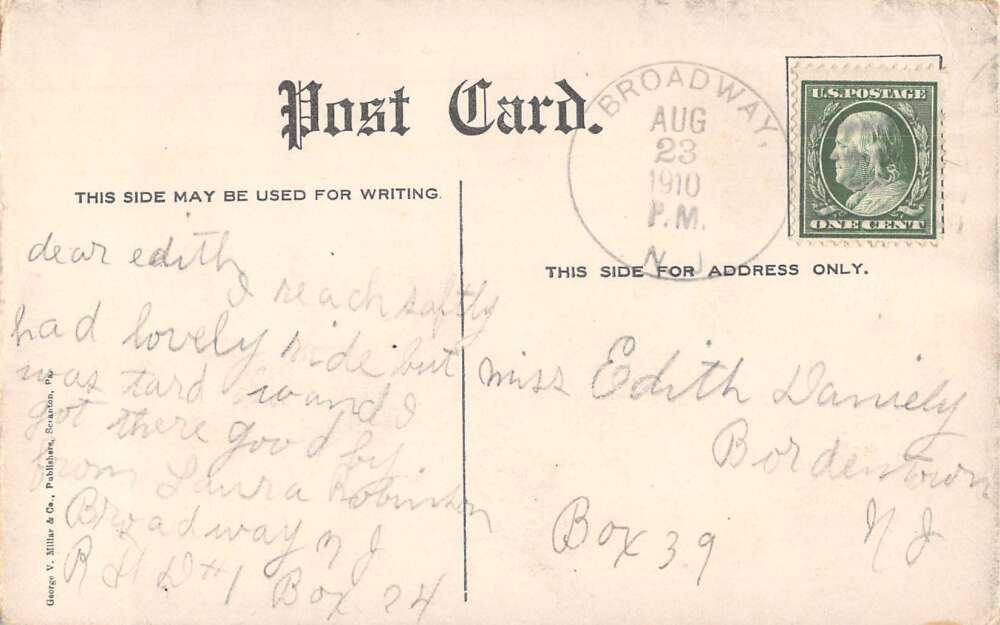 Post Card.
BROADWAY,
AUG
23
1910
P.M.
N.J.
U.S. POSTAGE
ONE CENT
THIS SIDE MAY BE USED FOR WRITING.
THIS SIDE FOR ADDRESS ONLY.
dear edith
I reach saftly
had lovely ride but
was tard when I
got there good by.
from Laura Robinson
Broadway N J
R F D #1 Box 24
Miss Edith Daniely
Bordentown
Box 39 N J
George V. Millar & Co., Publishers, Scranton, Pa.